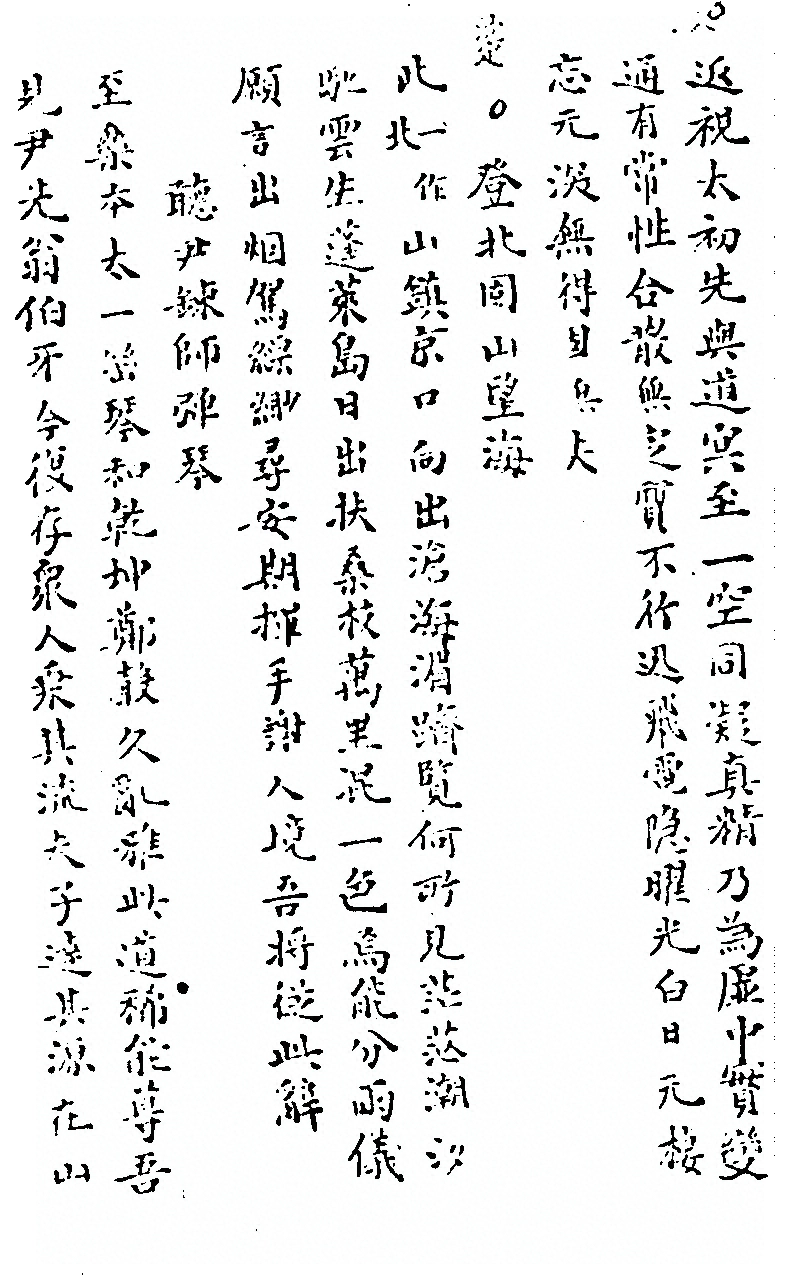 返視太初先與道冥至一空同凝真精乃為虛中實變
通有常性合散無定質不行迅飛電隱曜光白日元棲
忘元深無得自無大
登北固山望海
此一作北山鎮京口向出滄海湄躋覽何所見茫茫潮汐
馳雲生蓬萊島日出扶桑枝萬里混一色焉能分兩儀
願言出烟駕縹緲尋安期揮手謝人境吾將從此辭
聽尹鍊師彈琴
至樂本太一幽琴和乾坤鄭聲久亂雅此道稀能尊吾
見尹先翁伯牙今復存衆人乘其流夫子達其源在山